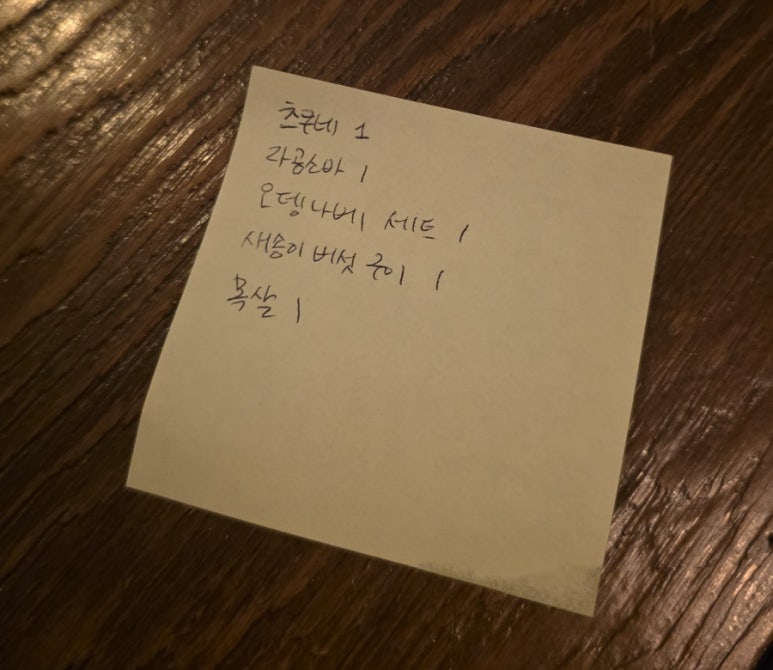 츠쿠네 1
라공소바 1
오뎅나베 세트 1
새송이 버섯 구이 1
목살 1